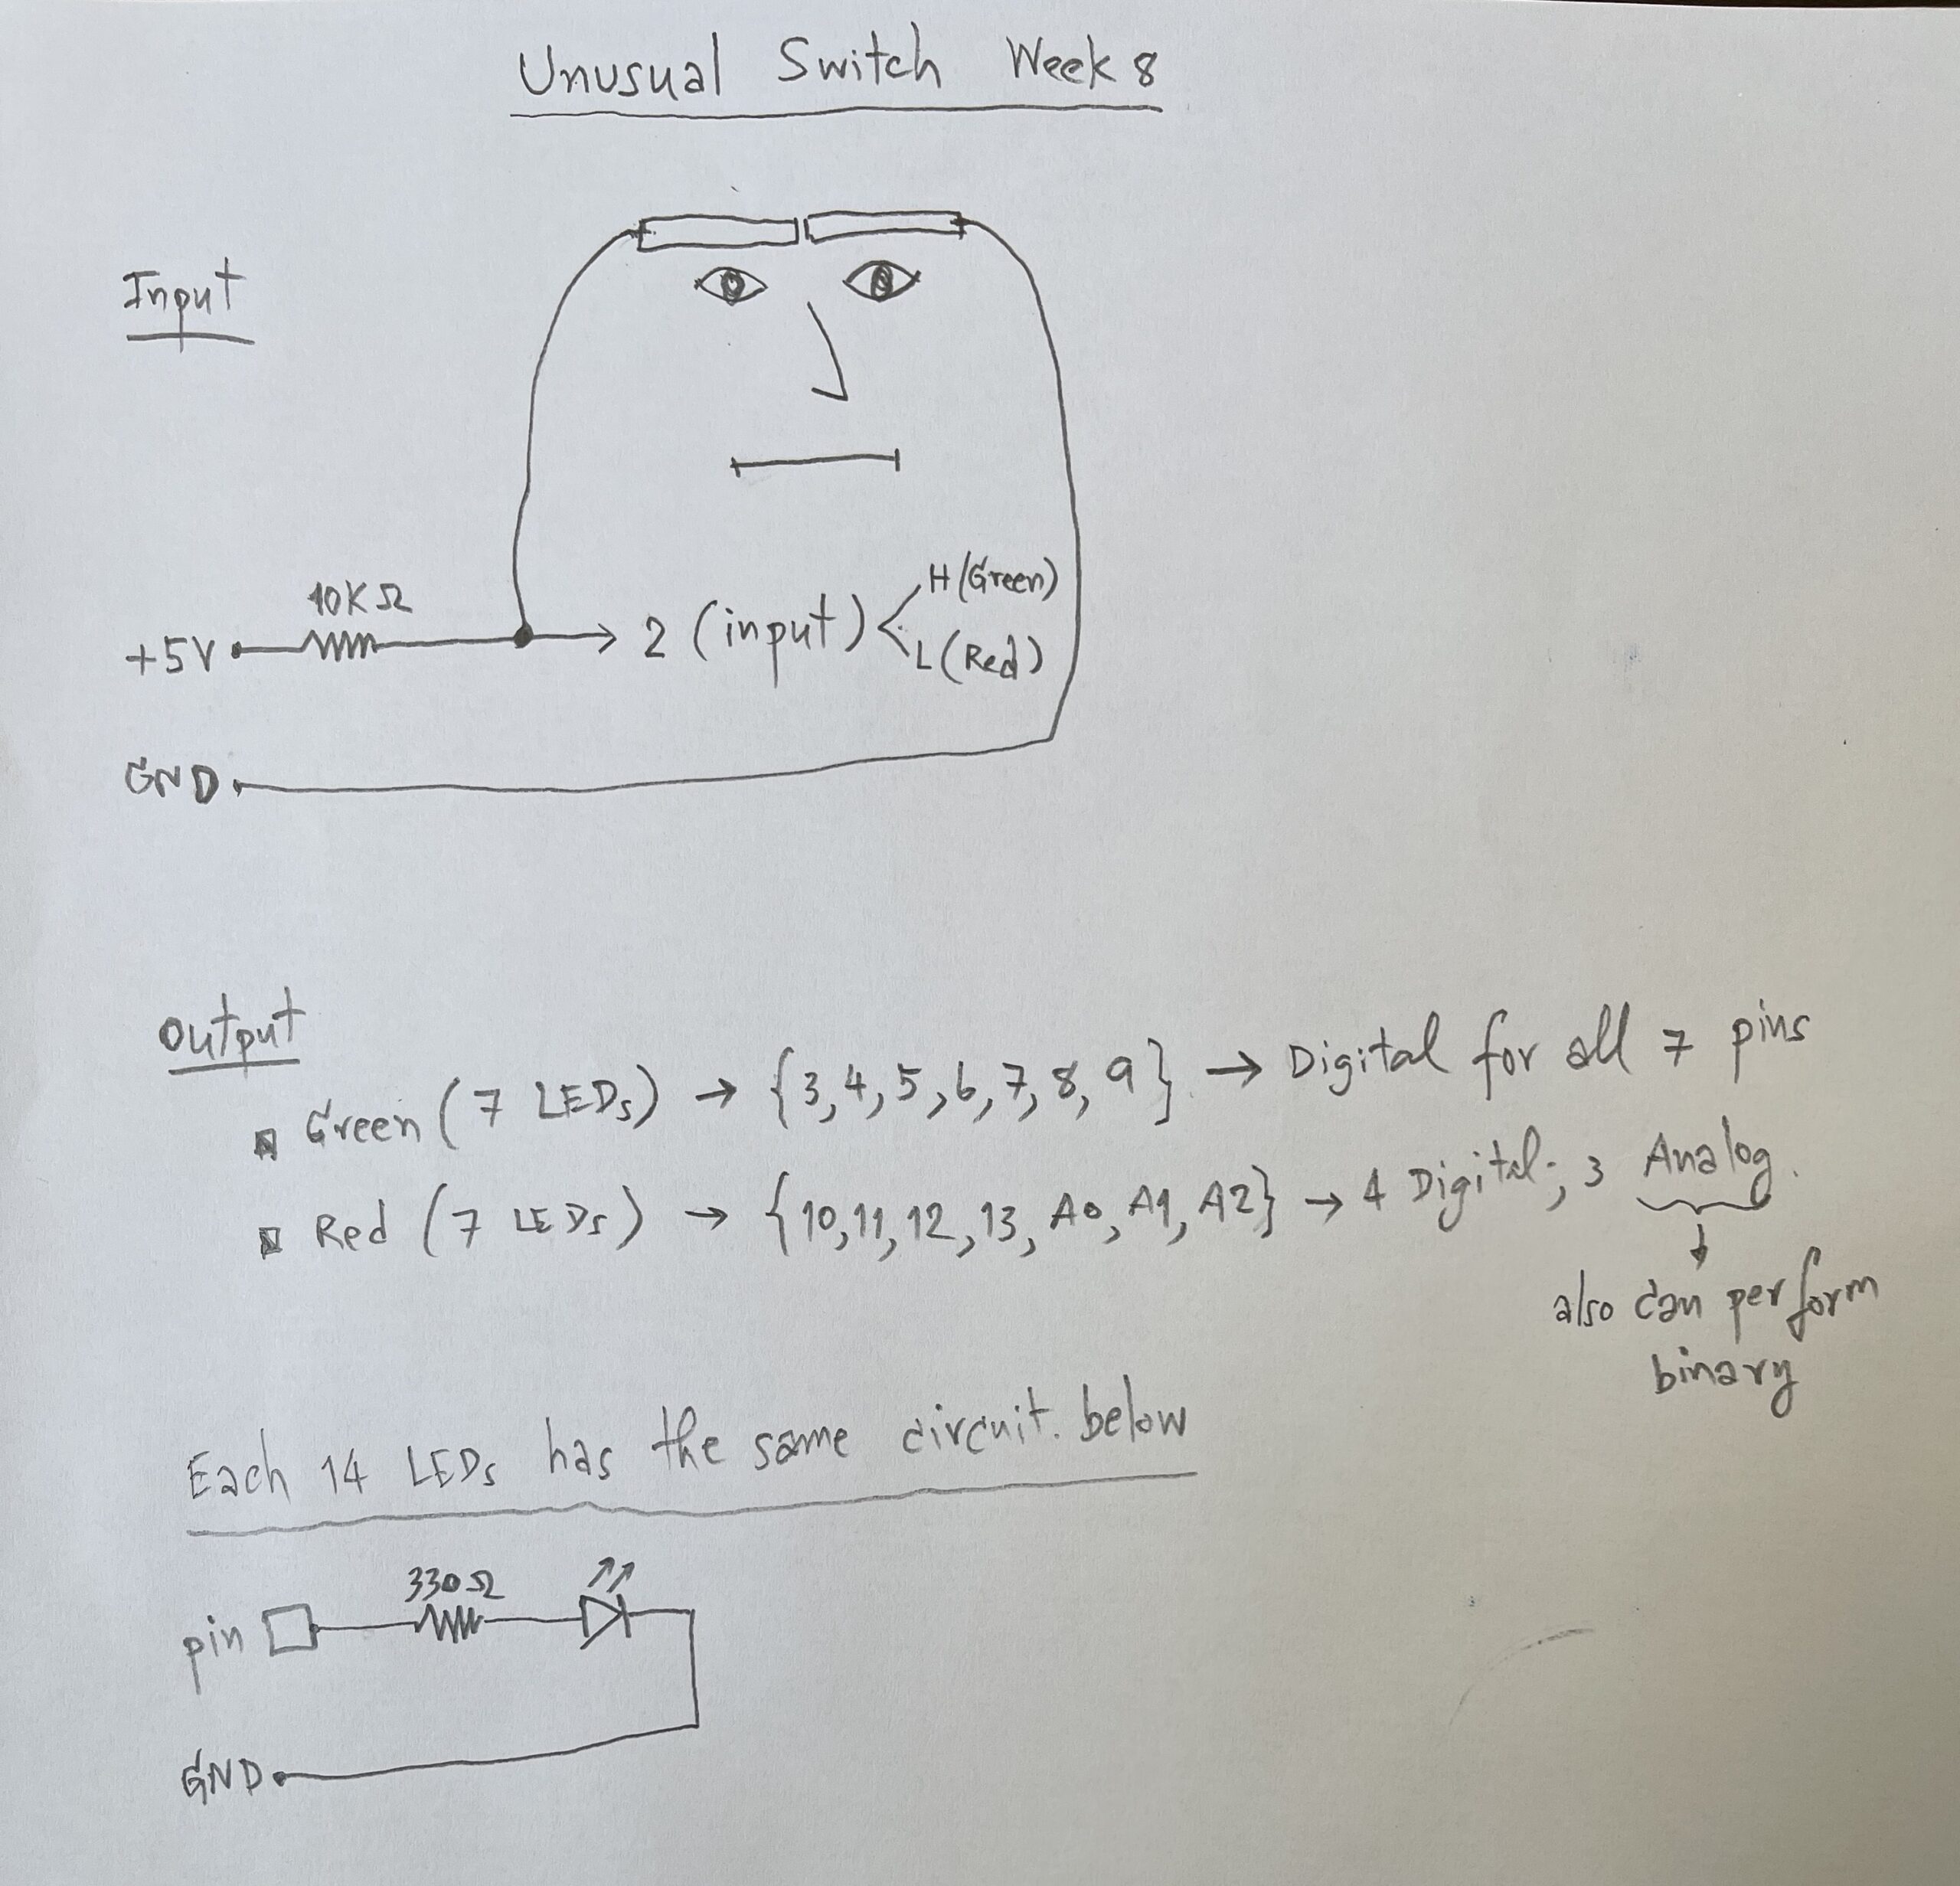 Unusual Switch Week 8
Input
10KΩ
+5V
2 (input)
H (Green)
L (Red)
GND
Output
Green (7 LEDs) → {3,4,5,6,7,8,9} → Digital for all 7 pins
Red (7 LEDs) → {10,11,12,13,A0,A1,A2} → 4 Digital; 3 Analog.
also can perform
binary
Each 14 LEDs has the same circuit. below
330Ω
pin
GND